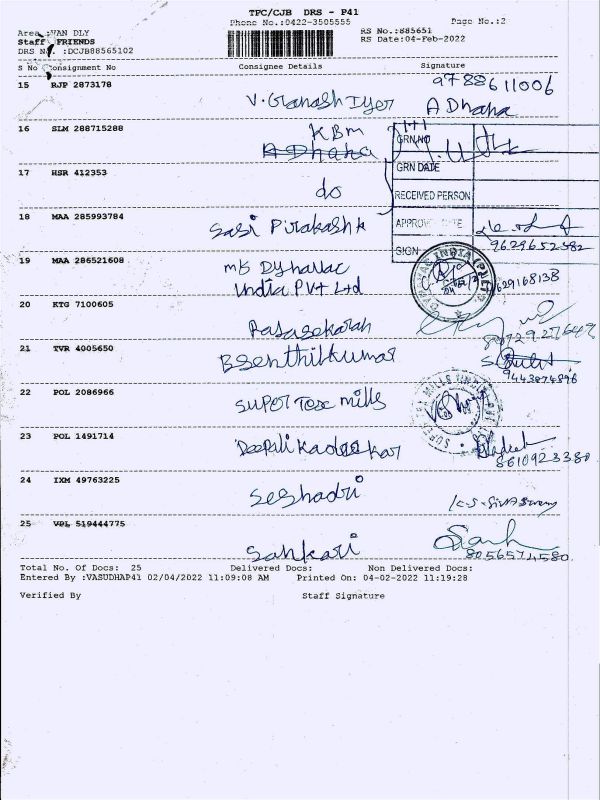 TPC/CJB DRS - P41
Phone No.:0422-3505555 Page No.:2
Area :VAN DLY RS No.:885651
Staff :FRIENDS RS Date:04-Feb-2022
DRS No. :DCJB88565102
S No Consignment No Consignee Details Signature
15 RJP 2873178 9788611006
V. Ganash Iyer A Dhaha
16 SLM 288715288 KBM
A Dhaha GRN NO
17 HSR 412353 GRN DATE
do RECEIVED PERSON
18 MAA 285993784 APPROVE DATE
Sasi Pirakash k 9629652382
SIGN
19 MAA 286521608 mk Dyhallac
India Pvt Ltd 629168138
20 KTG 7100605
Rasasekarah
21 TVR 4005650 BSenthilkumar
9443874896
22 POL 2086966
SUPER Tex mills
23 POL 1491714
Deepali Kadaskar
8610923380
24 IXM 49763225
Seshadri
25 VPL 519444775
Sahkari 8056574580
Total No. Of Docs: 25 Delivered Docs: Non Delivered Docs:
Entered By :VASUDHAP41 02/04/2022 11:09:08 AM Printed On: 04-02-2022 11:19:28
Verified By Staff Signature